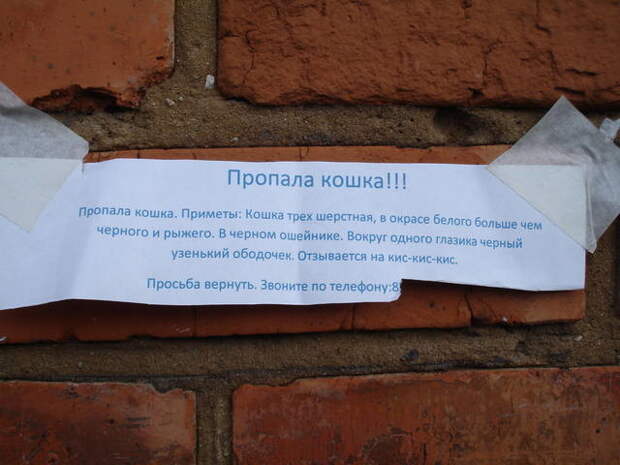 Пропала кошка!!!
Пропала кошка. Приметы: Кошка трех шерстная, в окрасе белого больше чем
черного и рыжего. В черном ошейнике. Вокруг одного глазика черный
узенький ободочек. Отзывается на кис-кис-кис.
Просьба вернуть. Звоните по телефону:8